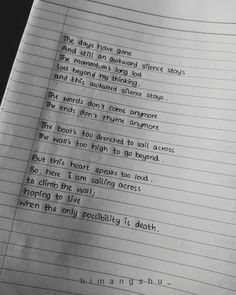 The days have gone
And still an awkward silence stays
The momentum's long lost
lost beyond my thinking.
and this awkward silence stays.
The words don't come anymore
The ends don't rhyme anymore
The boat's too drenched to sail across
The wall's too high to go beyond.
But this heart speaks too loud.
So, here I am sailing across
to climb the wall,
hoping to live
when the only possibility is death.
himangshu_